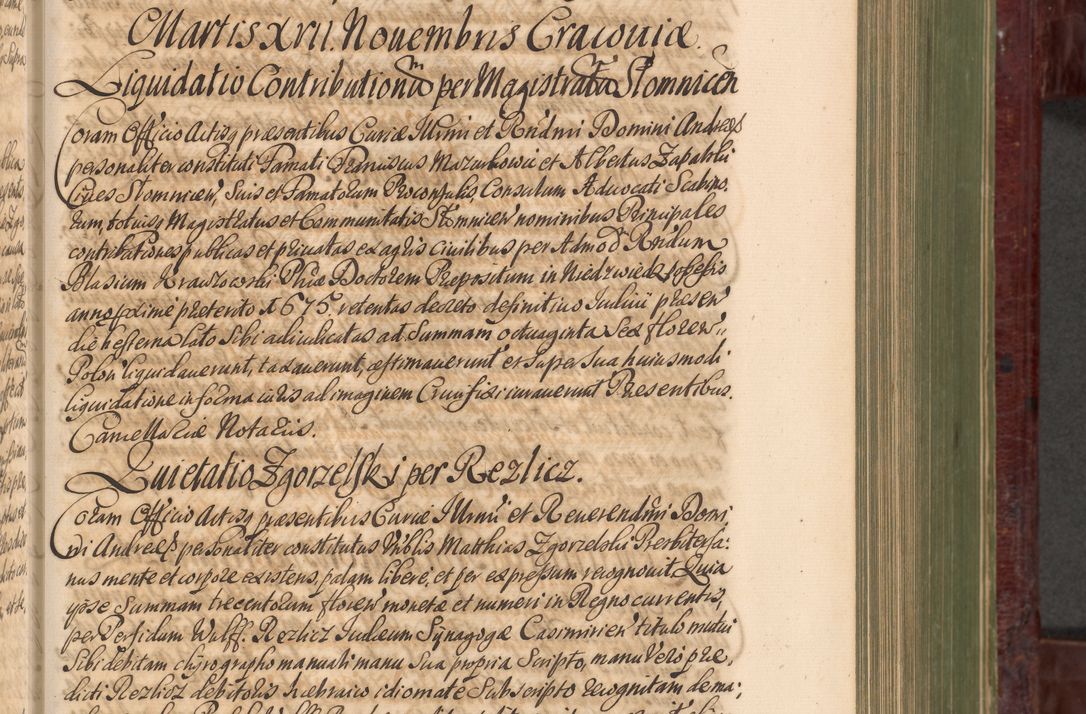 Martis XVII. Nouembris Cracouiæ.
Liquidatio Contributionũ per Magistratũ Słomnicen̄
Coram Officio Actisq́ præsentibus Curiæ Illrmi et Rndmi Domini Andreæ
personaliter constituti Famati Franciscus Mazurkowic et Albertus Zapalski
Ciues Słomnicen̄, suis et Famatorum Proconsulis, Consulum Aduocati Scabino,
rum, totiusq́ Magistratus et Communitatis Słomnicen̄ nominibus Principales
contributiones publicas et priuatas ex agris ciuilibus per Admod Rndum
Blasium Phiæ Doctorem Præpositum in Niedzwiedz possessis
anno proxime præterito 1675. retentas decreto definitiuo Iudicii præsen̄
die hesterna lato sibi adiudicatas ad Summam octuaginta sex floren̄
Polon̄ liquidauerunt, taxauerunt, æstimauerunt et super sua huiusmodi
liquidatione in forma iuris ad imaginem Crucifixi iurauerunt Præsentibus.
Cancellariæ Notariis.
Quietatio Zgorzelski per Rezlicz.
Coram Officio Actisq́ præsentibus Curiæ Illrmi et Reuerendmi Domi,
ni Andreæ personaliter constitutus Vblis Matthias Zgorzelski Presbiter sa:
nus mente et corpore existens, palam liberè, et per expressum recognouit, Quia
ipse Summam trecentorum floren̄ monetæ et numeri in Regno currentis,
per Perfidum Wulff. Rezlicz Iudæum Synagogæ Casimirien̄ titulo mutui
sibi debitam chyrographo manuali manu sua propria scripto, manu vero præ,
dicti Rezlicz debitoris hæbraico idiomate subscripto recognitam de ma: